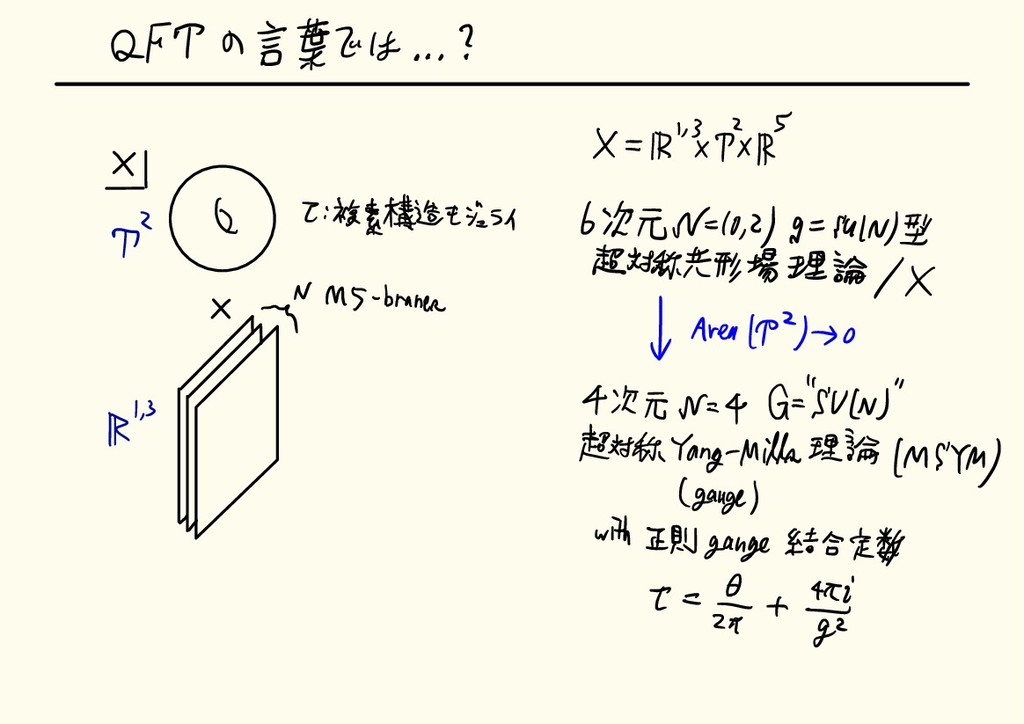 QFTの言葉では…?
X
T²
τ:複素構造モジュライ
×
N M5-branes
R^{1,3}
X = R^{1,3} × T² × R⁵
6次元 N=(0,2) g=su(N)型
超対称共形場理論 / X
Area(T²)→0
4次元 N=4 G="SU(N)"
超対称 Yang-Mills 理論 (MSYM)
(gauge)
with 正則 gauge 結合定数
τ = θ/2π + 4πi/g²